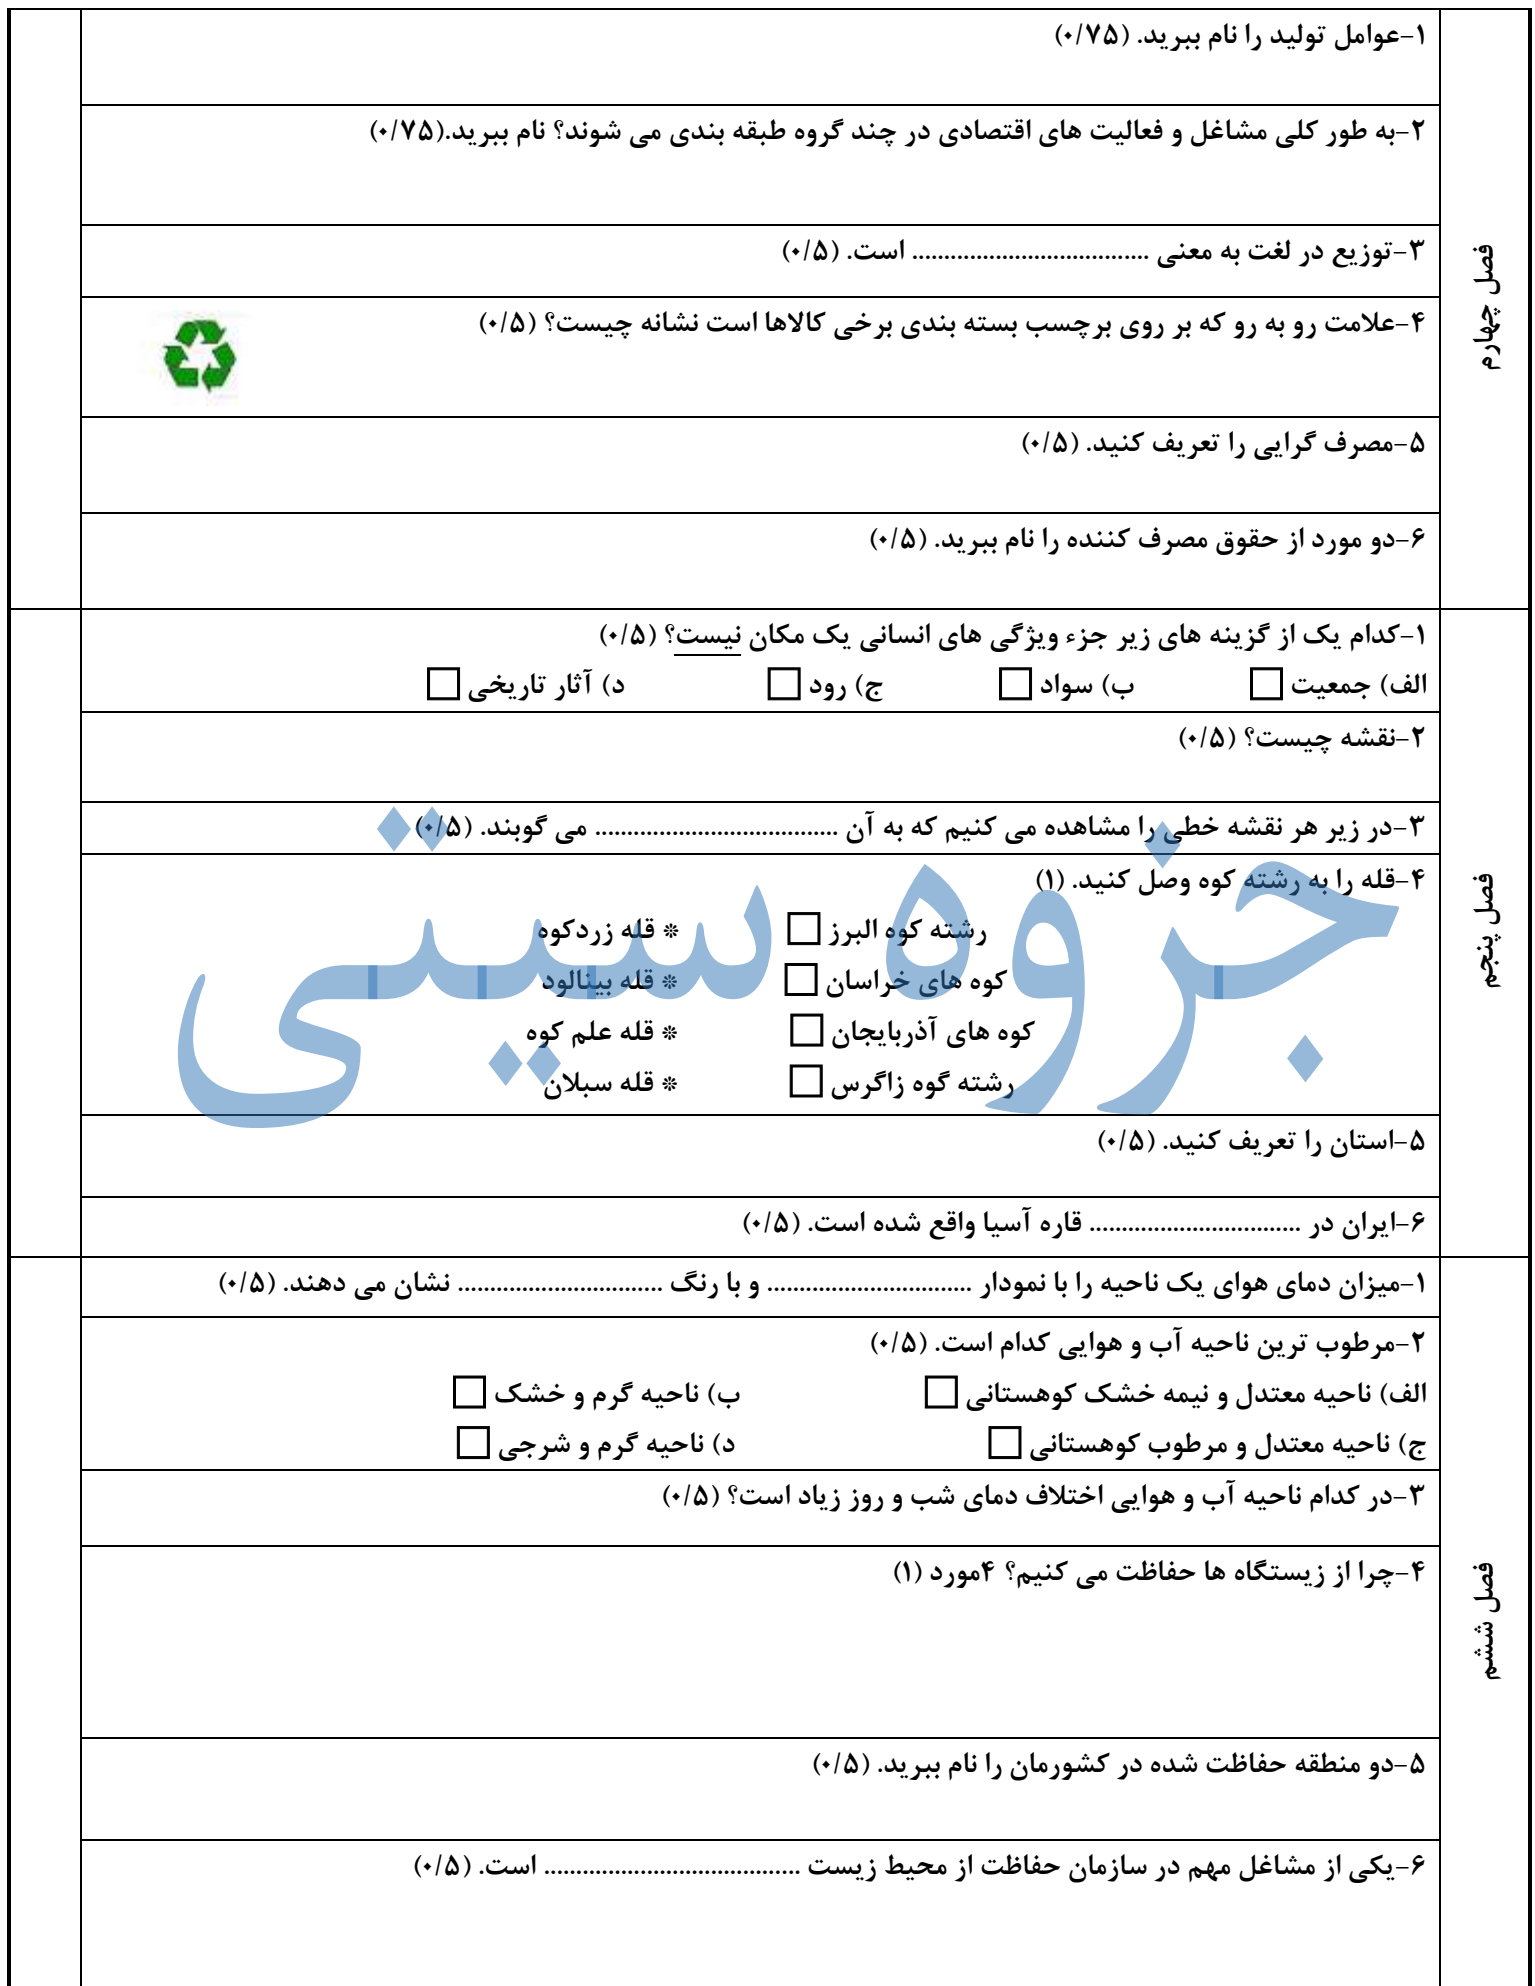 فصل چهارم
۱-عوامل تولید را نام ببرید. (۰/۷۵)
۲-به طور کلی مشاغل و فعالیت های اقتصادی در چند گروه طبقه بندی می شوند؟ نام ببرید.(۰/۷۵)
۳-توزیع در لغت به معنی ..................................... است. (۰/۵)
۴-علامت رو به رو که بر روی برچسب بسته بندی برخی کالاها است نشانه چیست؟ (۰/۵)
۵-مصرف گرایی را تعریف کنید. (۰/۵)
۶-دو مورد از حقوق مصرف کننده را نام ببرید. (۰/۵)
فصل پنجم
۱-کدام یک از گزینه های زیر جزء ویژگی های انسانی یک مکان نیست؟ (۰/۵)
الف) جمعیت □ ب) سواد □ ج) رود □ د) آثار تاریخی □
۲-نقشه چیست؟ (۰/۵)
۳-در زیر هر نقشه خطی را مشاهده می کنیم که به آن ...................................... می گوبند. (۰/۵)
۴-قله را به رشته کوه وصل کنید. (۱)
رشته کوه البرز □ * قله زردکوه
کوه های خراسان □ * قله بینالود
کوه های آذربایجان □ * قله علم کوه
رشته گوه زاگرس □ * قله سبلان
۵-استان را تعریف کنید. (۰/۵)
۶-ایران در ................................. قاره آسیا واقع شده است. (۰/۵)
جزوه سیتی
فصل ششم
۱-میزان دمای هوای یک ناحیه را با نمودار ................................ و با رنگ ................................ نشان می دهند. (۰/۵)
۲-مرطوب ترین ناحیه آب و هوایی کدام است. (۰/۵)
الف) ناحیه معتدل و نیمه خشک کوهستانی □ ب) ناحیه گرم و خشک □
ج) ناحیه معتدل و مرطوب کوهستانی □ د) ناحیه گرم و شرجی □
۳-در کدام ناحیه آب و هوایی اختلاف دمای شب و روز زیاد است؟ (۰/۵)
۴-چرا از زیستگاه ها حفاظت می کنیم؟ ۴مورد (۱)
۵-دو منطقه حفاظت شده در کشورمان را نام ببرید. (۰/۵)
۶-یکی از مشاغل مهم در سازمان حفاظت از محیط زیست ........................................ است. (۰/۵)